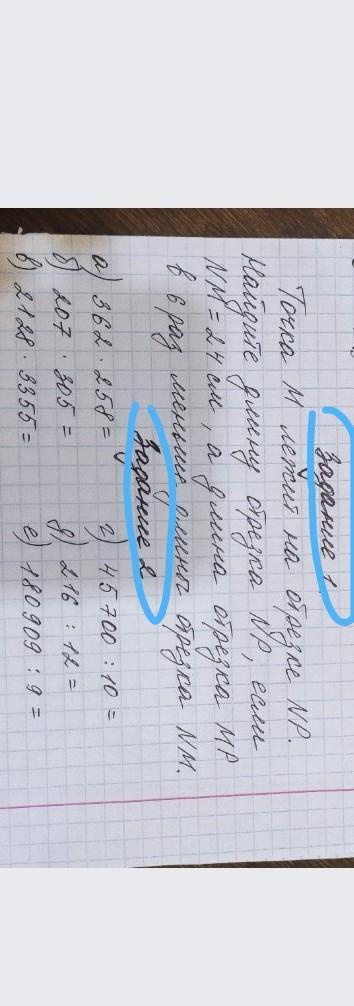 Задание 1
Точка М лежит на отрезке NP.
Найдите длину отрезка NP, если
NM = 24 см, а длина отрезка MP
в 6 раз меньше длины отрезка NM.
Задание 2
а) 362 · 258 = г) 45700 : 10 =
б) 207 · 305 = д) 216 : 12 =
в) 2128 · 3355 = е) 180909 : 9 =